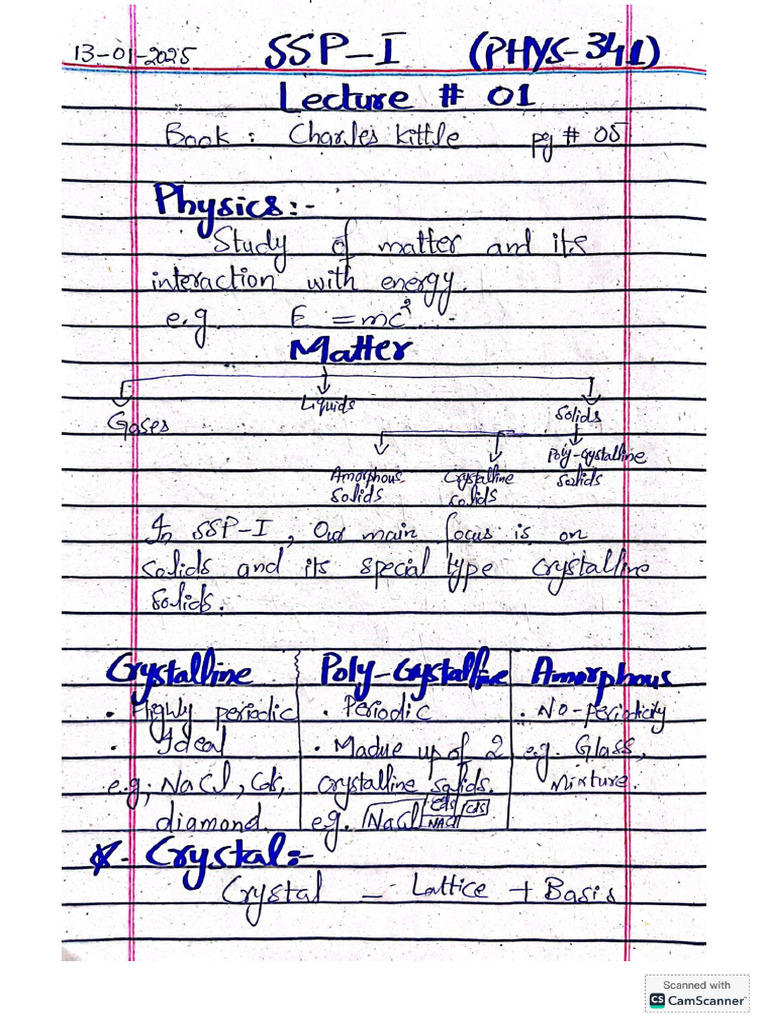 13-01-2025 SSP-I (PHYS-341)
Lecture # 01
Book : Charles Kittle pg # 05
Physics:-
Study of matter and its
interaction with energy.
e.g E = mc²
Matter
Gases Liquids Solids
Amorphous solids Crystalline solids Poly-crystalline solids
In SSP-I, Our main focus is on
solids and its special type crystalline
solids.
Crystalline Poly-Crystalline Amorphous
• Highly periodic • Periodic • No-periodicity
• Ideal • Madue up of 2 e.g. Glass,
e.g; NaCl, Cds, crystalline solids. Mixture.
diamond. eg. NaCl Cds NACl Cds
*. Crystal:-
Crystal = Lattice + Basis
Scanned with
CS CamScanner